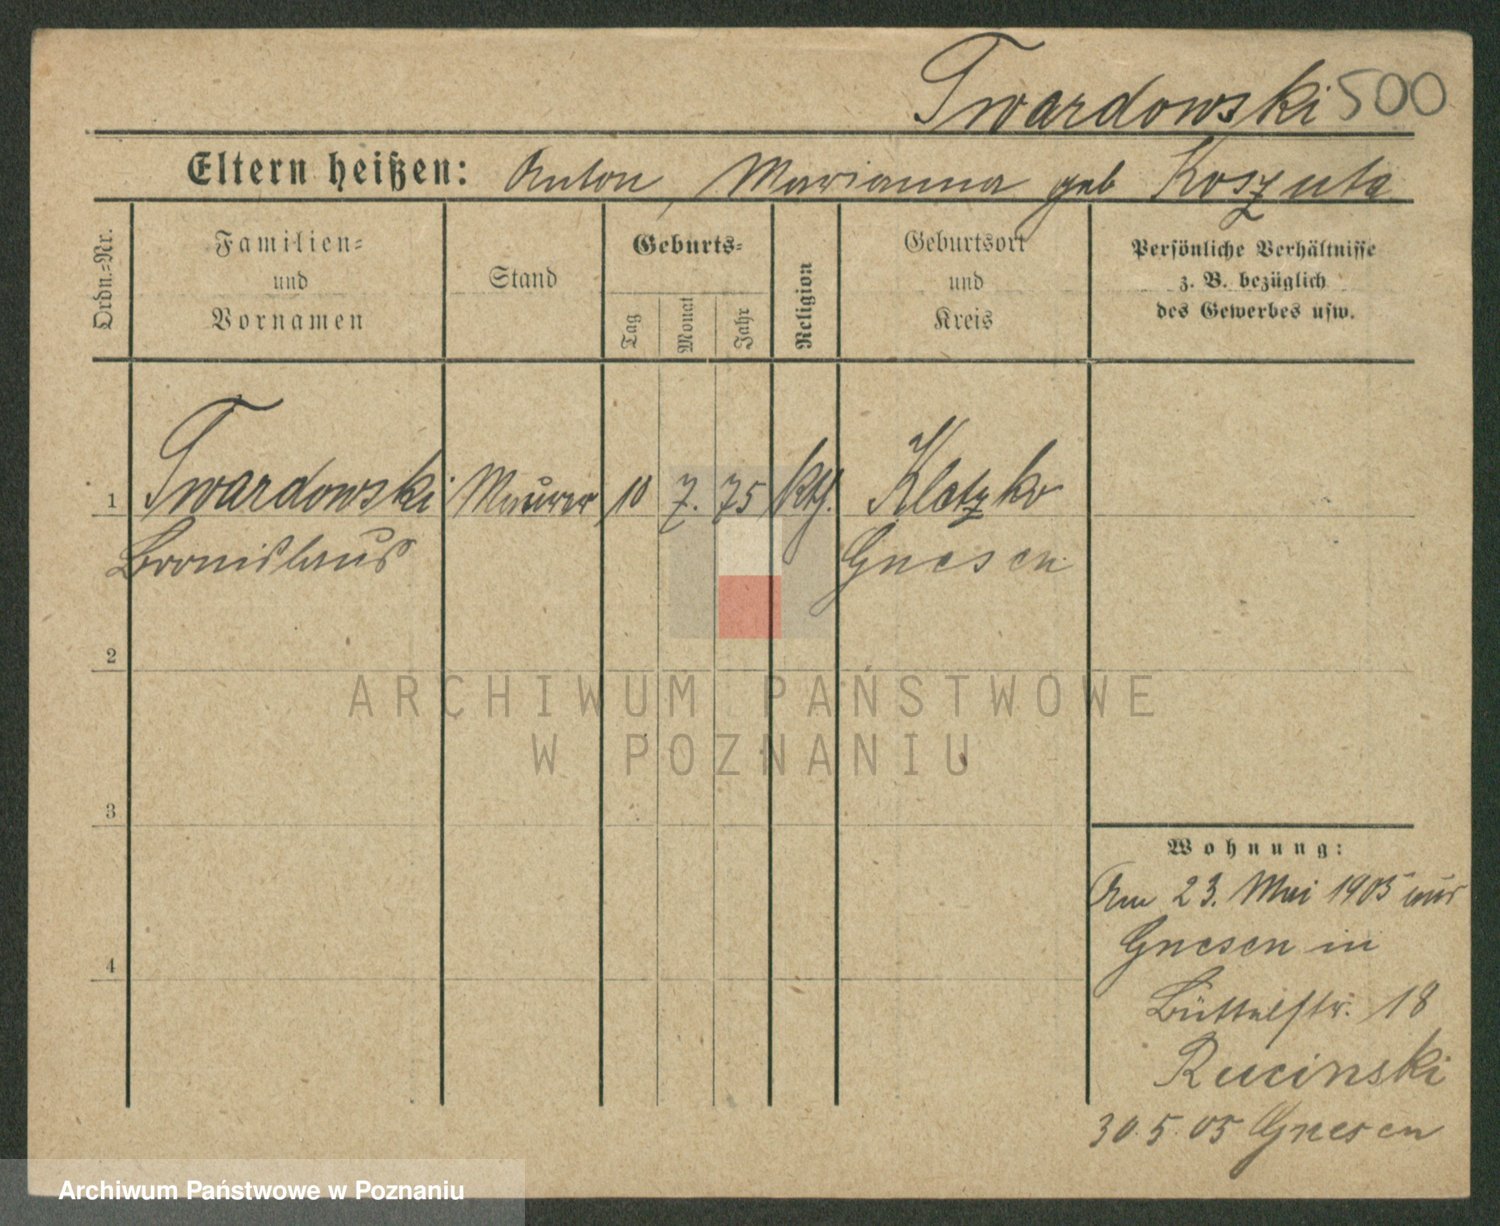 Twardowski 500
Eltern heißen: Anton, Marianna geb Koszuta
Ordn.-Nr.
Familien-
und
Vornamen
Stand
Geburts-
Tag
Monat
Jahr
Religion
Geburtsort
und
Kreis
Persönliche Verhältnisse
z. B. bezüglich
des Gewerbes usw.
1 Twardowski Maurer 10 7. 75 kth. Kletzko
Bronislaus Gnesen
2
ARCHIWUM PAŃSTWOWE
W POZNANIU
3
Wohnung:
Am 23. Mai 1905 aus
Gnesen in
4
Büttelstr. 18
Rucinski
30.5.05 Gnesen
Archiwum Państwowe w Poznaniu